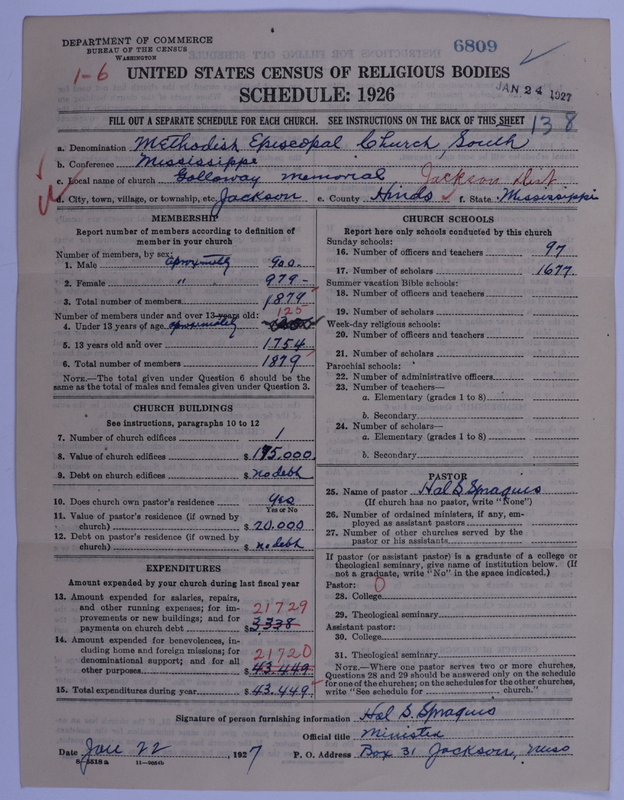 DEPARTMENT OF COMMERCE
BUREAU OF THE CENSUS
WASHINGTON
6809
1-6
UNITED STATES CENSUS OF RELIGIOUS BODIES
SCHEDULE: 1926
JAN 24 1927
FILL OUT A SEPARATE SCHEDULE FOR EACH CHURCH. SEE INSTRUCTIONS ON THE BACK OF THIS SHEET
138
a. Denomination Methodist Episcopal Church, South
b. Conference Mississippi
c. Local name of church Galloway Memorial Jackson Dist
d. City, town, village, or township, etc. Jackson e. County Hinds f. State Mississippi
MEMBERSHIP
Report number of members according to definition of
member in your church
Number of members, by sex:
1. Male approximately 900
2. Female " 979
3. Total number of members 1879
Number of members under and over 13 years old: 125
4. Under 13 years of age approximately
5. 13 years old and over 1754
6. Total number of members 1879
NOTE.—The total given under Question 6 should be the
same as the total of males and females given under Question 3.
CHURCH BUILDINGS
See instructions, paragraphs 10 to 12
7. Number of church edifices 1
8. Value of church edifices $ 175.000
9. Debt on church edifices $ no debt
10. Does church own pastor's residence yes
Yes or No
11. Value of pastor's residence (if owned by
church) $ 20.000
12. Debt on pastor's residence (if owned by
church) $ no debt
EXPENDITURES
Amount expended by your church during last fiscal year
13. Amount expended for salaries, repairs,
and other running expenses; for im-
provements or new buildings; and for
payments on church debt 21729 $ 3338
14. Amount expended for benevolences, in-
cluding home and foreign missions; for
denominational support; and for all
other purposes 21720 $ 43.449
15. Total expenditures during year $ 43.449
CHURCH SCHOOLS
Report here only schools conducted by this church
Sunday schools:
16. Number of officers and teachers 97
17. Number of scholars 1677
Summer vacation Bible schools:
18. Number of officers and teachers
19. Number of scholars
Week-day religious schools:
20. Number of officers and teachers
21. Number of scholars
Parochial schools:
22. Number of administrative officers
23. Number of teachers—
a. Elementary (grades 1 to 8)
b. Secondary
24. Number of scholars—
a. Elementary (grades 1 to 8)
b. Secondary
PASTOR
25. Name of pastor Hal S Spragins
(If church has no pastor, write "None")
26. Number of ordained ministers, if any, em-
ployed as assistant pastors
27. Number of other churches served by the
pastor or his assistants
If pastor (or assistant pastor) is a graduate of a college or
theological seminary, give name of institution below. (If
not a graduate, write "No" in the space indicated.)
Pastor: 0
28. College
29. Theological seminary
Assistant pastor:
30. College
31. Theological seminary
NOTE.—Where one pastor serves two or more churches,
Questions 28 and 29 should be answered only on the schedule
for one of the churches; on the schedules for the other churches,
write "See schedule for church."
Signature of person furnishing information Hal S. Spragins
Official title Minister
Date Jan 22, 1927 P. O. Address Box 31 Jackson, Miss
8-5518a 11-9084b